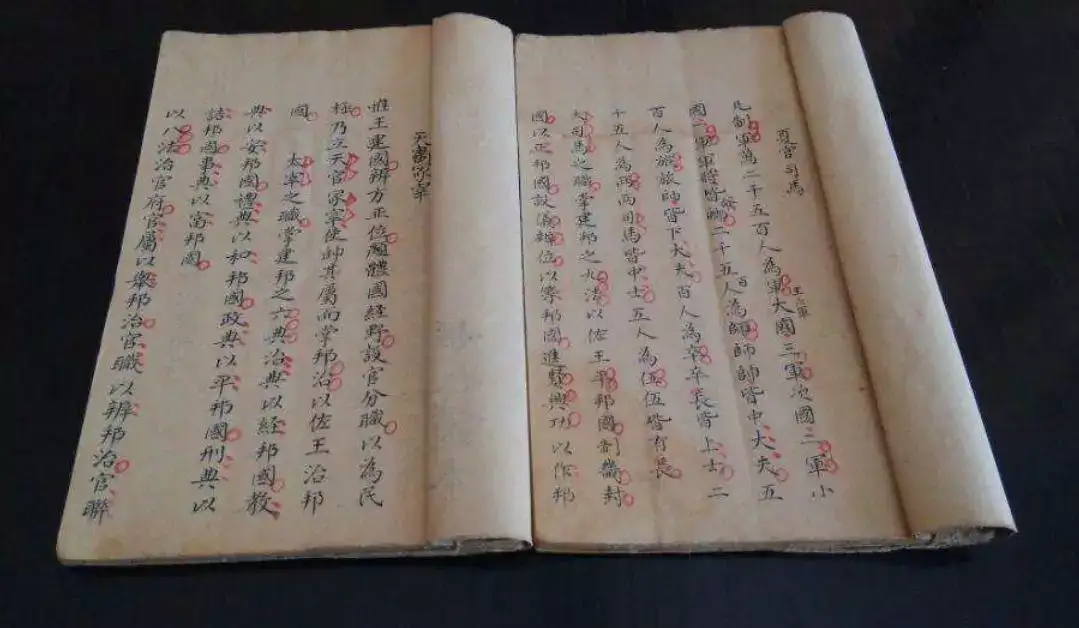 夏官司馬
凡制軍萬二千五百人為軍王六軍大國三軍次國二軍小
國一軍軍將皆命卿二千五百人為師師帥皆中大夫五
百人為旅旅帥皆下大夫百人為卒卒長皆上士二
十五人為兩兩司馬皆中士五人為伍伍皆有長
大司馬之職掌建邦之九法以佐王平邦國制畿封
國以正邦國設儀辨位以等邦國進賢興功以作邦
天官冢宰
惟王建國辨方正位體國經野設官分職以為民
極乃立天官冢宰使帥其屬而掌邦治以佐王治邦
國 太宰之職掌建邦之六典治典以經邦國教
典以安邦國禮典以和邦國政典以平邦國刑典以
詰邦國事典以富邦國
以八法治官府官屬以舉邦治官職以辨邦治官聯